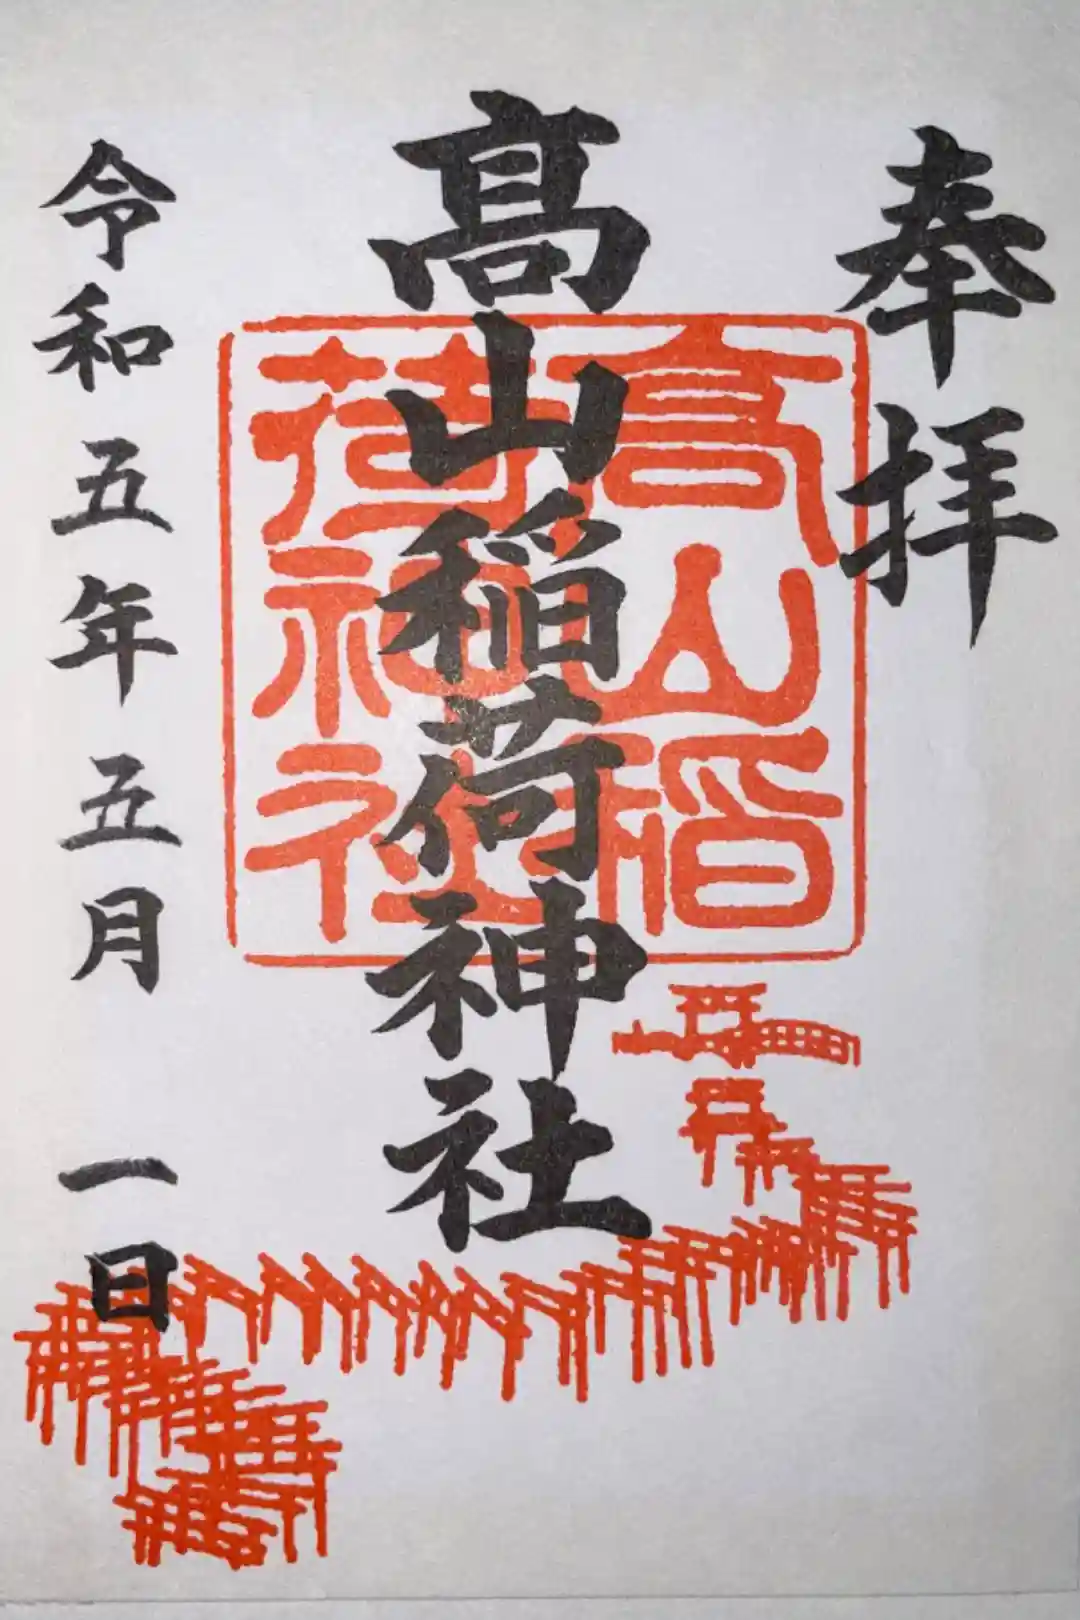 奉拝
髙山稲荷神社
高山稲
荷神社
令和五年五月一日